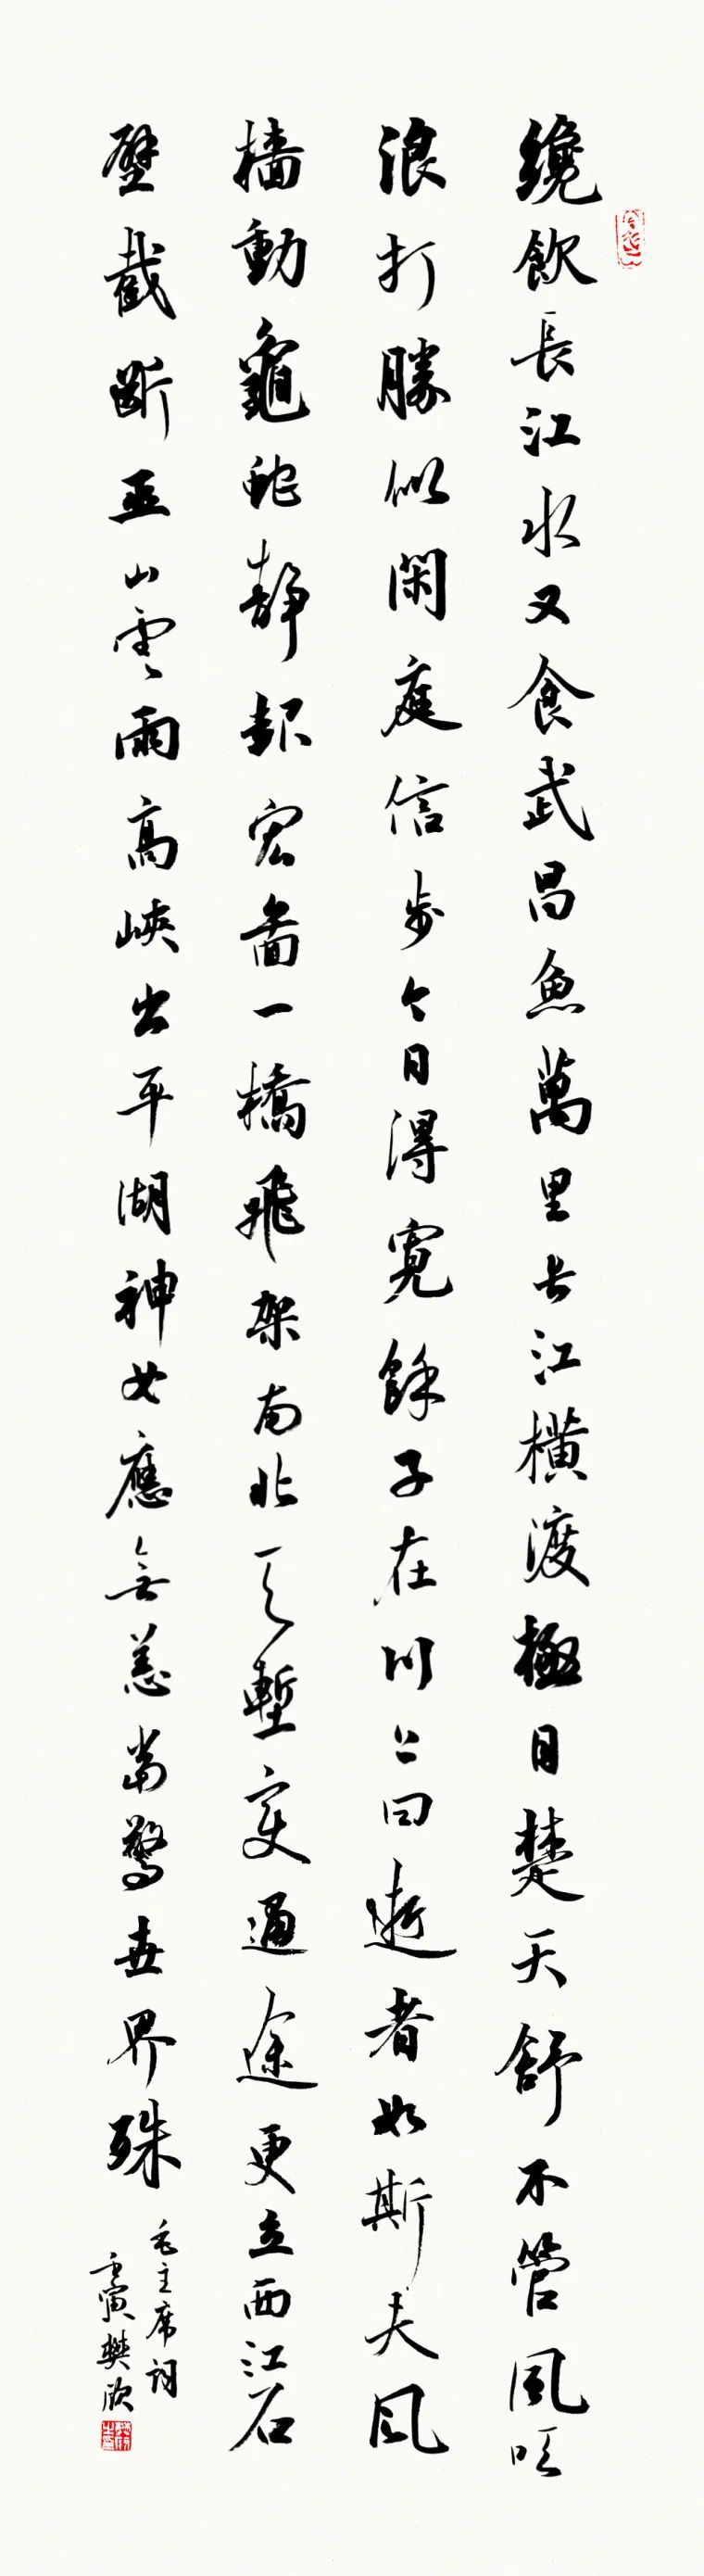 纔飲長江水又食武昌魚萬里长江橫渡極目楚天舒不管風吹
浪打勝似閑庭信步今日得寬餘子在川上曰逝者如斯夫風
檣動龜蛇靜起宏圖一橋飛架南北天塹變通途更立西江石
壁截斷巫山雲雨高峽出平湖神女應無恙當驚世界殊
毛主席詞
壬寅樊